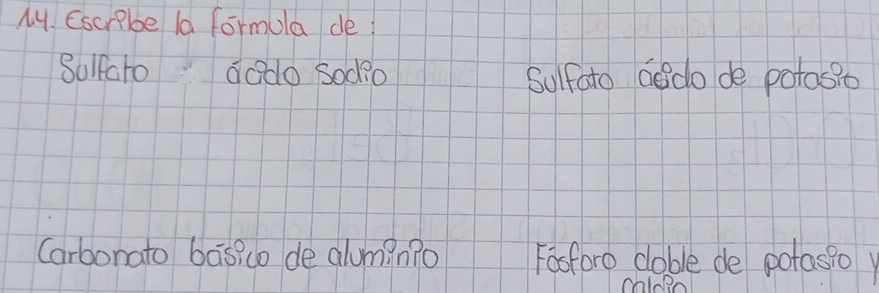 14. Escribe la fórmula de:
Sulfato ácido sodio
Sulfato ácido de potasio
Carbonato básico de aluminio
Fósforo doble de potasio y
calcio